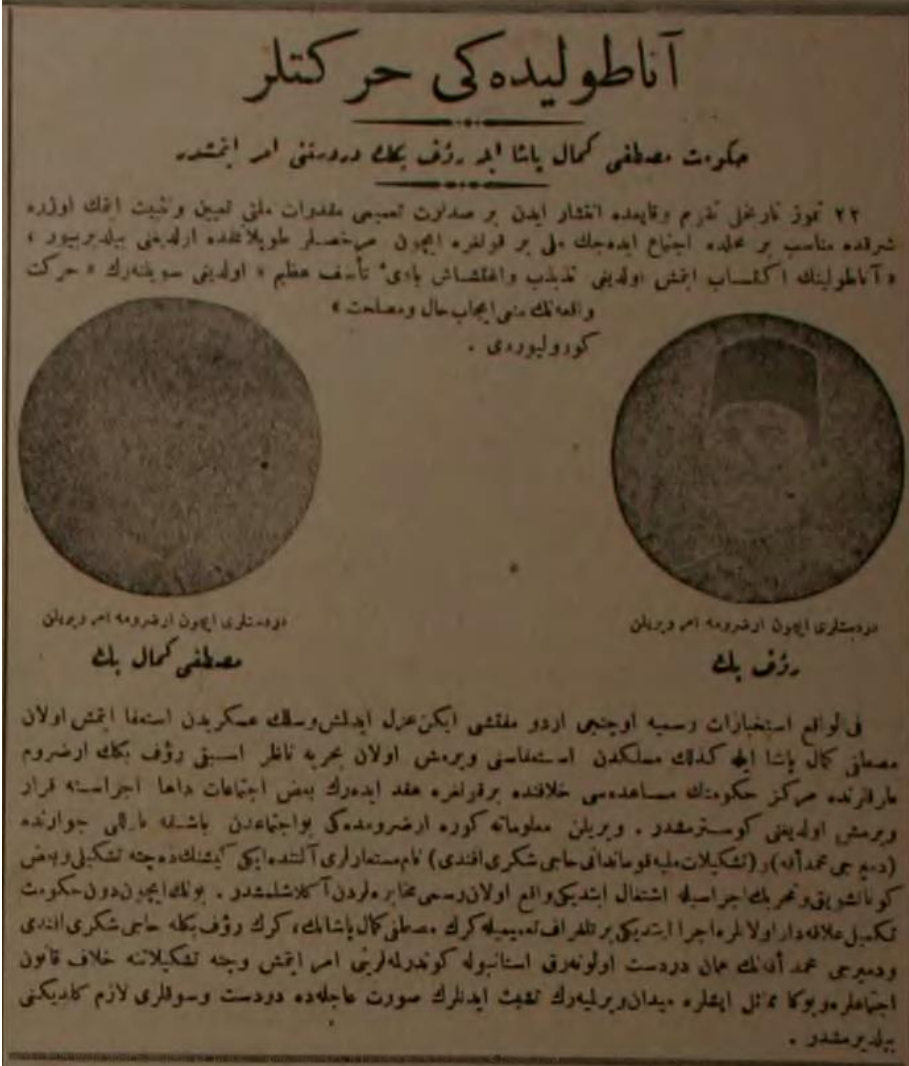 آناطولیده‌کی حرکتلر
حکومت مصطفی کمال پاشا ایله رؤف بکك دردستنی امر ایتمشدر
٢٢ تموز تاریخلی تقویم وقایعده انتشار ایدن بر صدارت تعمیمی مقدرات ملتی تعیین و تثبیت ایتمك اوزره
شرقده مناسب بر محلده اجتماع ایده‌جك ملی بر قونغره ایچون مرخصلر طوپلانمقده اولدیغنی بیلدیریور ،
« آناطولینك اکتساب ایتمش اولدیغی تذبذب واغتشاش بادئ تأسف عظیم » اولدیغنی سویلنه‌رك « حرکت
واقعه‌نك منعی ایجاب حال ومصلحت »
کورولیوردی .
دردستلری ایچون ارضرومه امر ویریلن
رؤف بك
دردستلری ایچون ارضرومه امر ویریلن
مصطفی کمال بك
فی‌الواقع استخبارات رسمیه اوچنجی اردو مفتشی ایکن عزل ایدلمش وسلك عسکریدن استعفا ایتمش اولان
مصطفی کمال پاشا ایله کذلك مسلکدن استعفاسنی ویرمش اولان بحریه ناظر اسبقی رؤف بکك ارضروم
طرفلرنده مرکز حکومتك مساعده‌سی خلافنده برقونغره عقد ایده‌رك بعض اجتماعات داها اجراسنه قرار
ویرمش اولدیغنی کوسترمشدر . ویریلن معلوماته کوره ارضرومده‌کی بواجتماعدن باشقه نازللی جوارنده
(دمیرجی محمد افه) و (تشکیلات ملیه قوماندانی حاجی شکری افندی) نام مستعارلری آلتنده ایکی کیمسنك ده چته تشکیلی وبعض
کونا تشویق وتحریك اجراسیله اشتغال ایتدیکی واقع اولان رسمی مخابره‌لردن آکلاشلمشدر . بونك ایچون دون حکومت
تکمیل علاقه‌دار اولانلره اجرا ایتدیکی بر تلغراف تعمیمیله کرك مصطفی کمال پاشانك، کرك رؤف بکله حاجی شکری افندی
ودمیرجی محمد افه‌نك همان دردست اولونه‌رق استانبوله کوندرلمه‌لرینی امر ایتمش وچته تشکیلاتنه خلاف قانون
اجتماعلره وبوکا مماثل ایشلره میدان ویرلمیه‌رك تشبث ایدنلرك صورت عاجله‌ده دردست وسوقلری لازم کلدیکنی
بیلدیرمشدر .